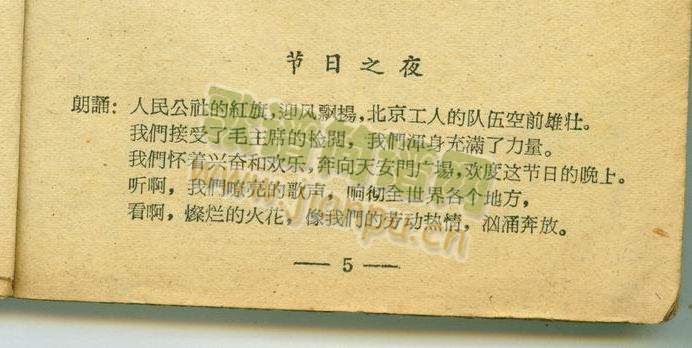 节日之夜
朗誦：人民公社的紅旗，迎风飘揚，北京工人的队伍空前雄壮。
我們接受了毛主席的检閱，我們渾身充滿了力量。
我們怀着兴奋和欢乐，奔向天安門广場，欢度这节日的晚上。
听啊，我們嘹亮的歌声，响彻全世界各个地方，
看啊，燦烂的火花，像我們的劳动热情，汹涌奔放。
— 5 —